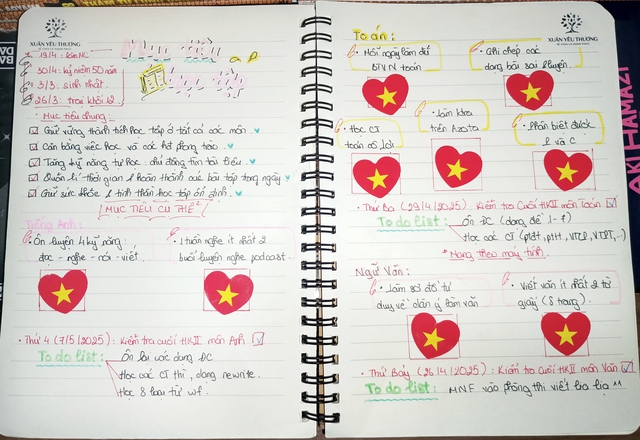 XUÂN YÊU THƯƠNG
Mục tiêu
học tập
30/4: kỷ niệm 50 năm
3/3: sinh nhật
26/3: trại khối 12
Mục tiêu chung:
Giữ vững thành tích học tập ở tất cả các môn.
Cân bằng việc học và các hđ phong trào.
Tăng kỹ năng tự học: chủ động tìm tài liệu.
Quản lí thời gian & hoàn thành các bài tập trong ngày
Giữ sức khỏe & tinh thần học tập ổn định.
MỤC TIÊU CỤ THỂ
Tiếng Anh:
• Ôn luyện 4 kỹ năng
đọc - nghe - nói - viết.
• 1 tuần nghe ít nhất 2
buổi luyện nghe podcast.
• Thứ 4 (7/5/2025): Kiểm tra cuối HKII môn Anh
To do list:
Ôn lại các dạng ĐC
Học các CT thì, dạng rewrite.
Học 8 loại từ wf.
XUÂN YÊU THƯƠNG
Toán:
• Mỗi ngày làm đủ
BTVN toán
• Ghi chép các
dạng bài sai & luyện.
• Học CT
toán có lợi
• Làm khra
trên Azota
• Phân biệt được
P và C.
• Thứ Ba (29/4/2025): Kiểm tra Cuối HKII môn Toán
To do list:
Ôn ĐC (dạng đề 1-7)
Học các CT (ptđt, ptH, VTCP, VTPT,...)
* Mang theo máy tính.
Ngữ Văn:
• Làm sơ đồ tư
duy về dàn ý làm văn
• Viết văn ít nhất 2 tờ
giấy (8 trang).
• Thứ Bảy (26/4/2025): Kiểm tra Cuối HKII môn Văn
To do list: MNF vào phòng thi viết lia lịa ^^